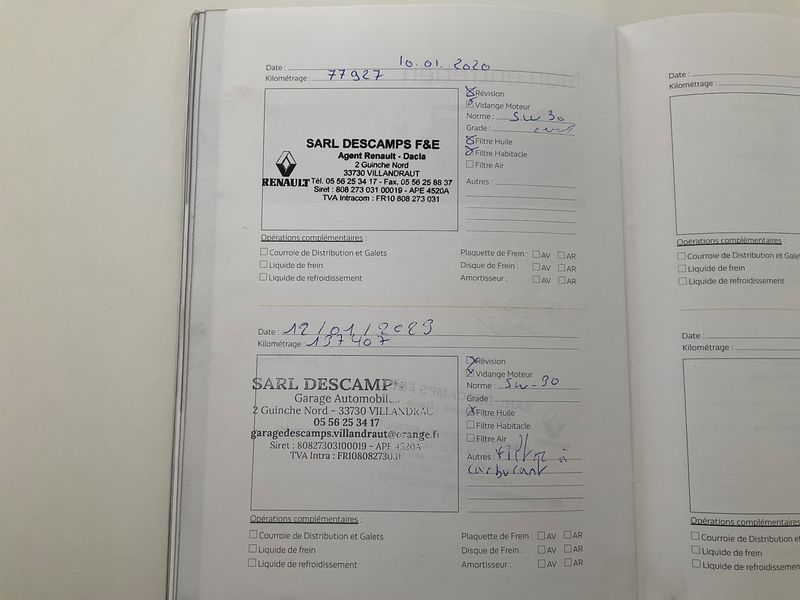 Date : 10.01.2020
Kilométrage : 77927
SARL DESCAMPS F&E
Agent Renault - Dacia
2 Guinche Nord
33730 VILLANDRAUT
RENAULT Tél. 05 56 25 34 17 - Fax. 05 56 25 88 37
Siret : 808 273 031 00019 - APE 4520A
TVA Intracom : FR10 808 273 031
Révision
Vidange Moteur
Norme : 5W30
Grade :
Filtre Huile
Filtre Habitacle
Filtre Air
Autres :
Opérations complémentaires :
Courroie de Distribution et Galets
Liquide de frein
Liquide de refroidissement
Plaquette de Frein : AV AR
Disque de Frein : AV AR
Amortisseur : AV AR
Date : 12/01/2023
Kilométrage : 137407
SARL DESCAMPS
Garage Automobile
2 Guinche Nord - 33730 VILLANDRAU
05 56 25 34 17
garagedescamps.villandraut@orange.fr
Siret : 80827303100019 - APE 4520A
TVA Intra : FR10808273031
Révision
Vidange Moteur
Norme : 5W-30
Grade :
Filtre Huile
Filtre Habitacle
Filtre Air
Autres : Filtre à
carburant
Opérations complémentaires :
Courroie de Distribution et Galets
Liquide de frein
Liquide de refroidissement
Plaquette de Frein : AV AR
Disque de Frein : AV AR
Amortisseur : AV AR
Date :
Kilométrage :
Opérations complémentaires :
Courroie de Distribution et Galets
Liquide de frein
Liquide de refroidissement
Date :
Kilométrage :
Opérations complémentaires :
Courroie de Distribution et
Liquide de frein
Liquide de refroidissement